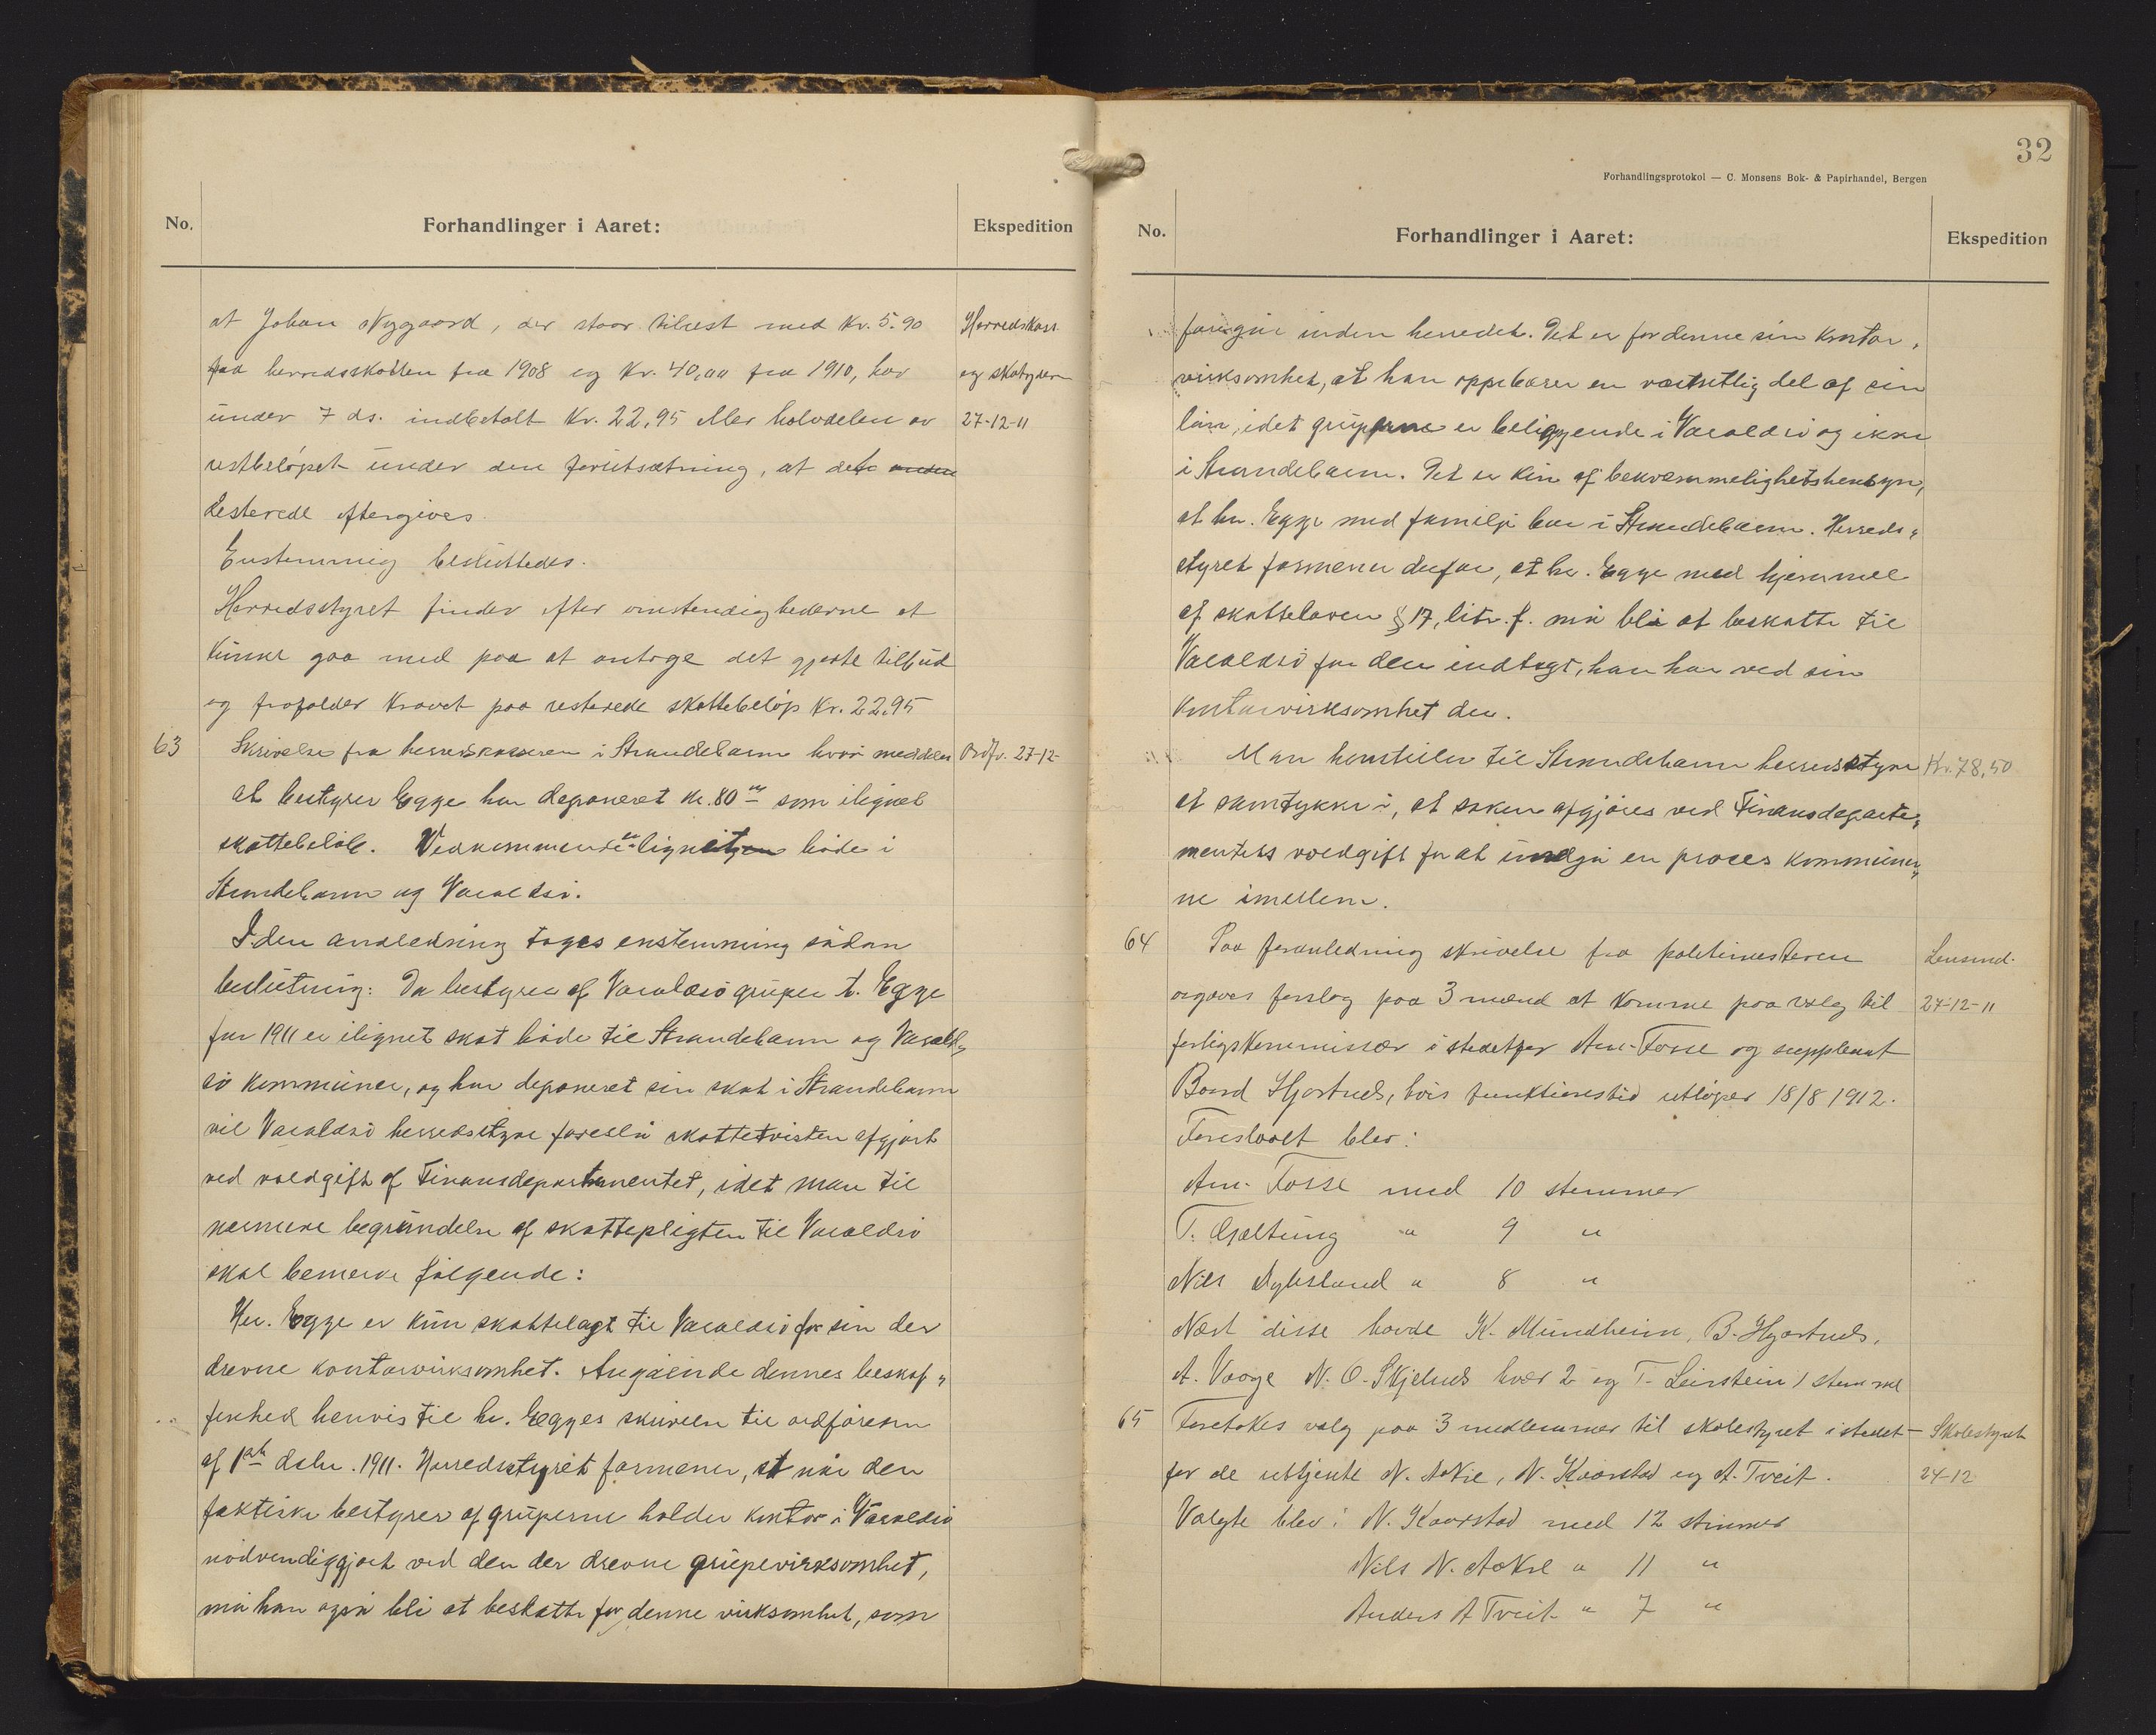 No.
Forhandlinger i Aaret:
Ekspedition
at Johan Nygaard, der staar tilrest med Kr. 5.90
paa herredsskatten fra 1908 og Kr. 40,00 fra 1910, har
under 7 ds. indbetalt Kr. 22,95 eller halvdelen av
restbeløpet under den forutsætning, at det
resterede eftergives.
Enstemmig besluttedes.
Herredsstyret finder efter omstendighederne at
kunne gaa med paa at antage det gjorte tilbud
og frafalder kravet paa resterede skattebeløp Kr. 22,95
Herredskass.
og skatyderen
27-12-11
63
Skrivelse fra herredskasseren i Strandebarm hvori meddeles
at bestyrer Egge har deponeret kr. 80 som ilignet
skattebeløb. Vedkommende er lignet både i
Strandebarm og Varaldsö.
I den anledning toges enstemmig sådan
beslutning: Da bestyrer af Varaldsö gruper t. Egge
for 1911 er ilignet skat både til Strandebarm og Varald„
sö kommuner, og har deponeret sin skat i Strandebarm
vil Varaldsö herredsstyre foreslå skattetvisten afgjort
ved voldgift af Finansdepartementet, idet man til
nærmere begrundelse af skattepligten til Varaldsö
skal bemerke følgende:
Hr. Egge er kun skattelagt til Varaldsö for sin der
drevne kontorvirksomhet. Angående dennes beskaf„
fenhed henvis til hr. Egges skrivelse til ordføreren
af 1ste dsbr. 1911. Herredsstyret formener, at når den
faktiske bestyrer af gruperne holder kontor i Varaldsö
nødvendiggjort ved den der drevne grupevirksomhet,
må han også bli at beskatte for denne virksomhet, som
Ordfr. 27-12-
32
Forhandlingsprotokol — C. Monsens Bok- & Papirhandel, Bergen
No.
Forhandlinger i Aaret:
Ekspedition
foregår inden herredet. Det er for denne sin kontor„
virksomhet, at han oppebærer en væsentlig del af sin
løn, idet gruperne er beliggende i Varaldsö og ikke
i Strandebarm. Det er kun af bekvæmmelighetshensyn,
at hr. Egge med familje bor i Strandebarm. Herreds„
styret formener derfor, at hr. Egge med hjemmel
af skatteloven § 17, litr. f. må bli at beskatte til
Varaldsö for den indtægt, han har ved sin
kontorvirksomhet der.
Man henstiller til Strandebarm herredsstyre
at samtykke i, at saken afgjøres ved Finansdeparte„
mentets voldgift for at undgå en proces kommuner„
ne imellem.
Kr. 78,50
64
Paa foranledning skrivelse fra politimesteren
avgaves forslag paa 3 mænd at komme paa valg til
forligskommissær i stedetfor Am. Fosse og suppleant
Baard Hjartnes, hvis funktionstid utløper 18/8 1912.
Foreslaaet blev:
Am. Fosse med 10 stemmer
T. Gjeltung " 9 "
Nils Dyhsland " 8 "
Næst disse havde K. Mundheim, B. Hjartnes,
A. Vaage N. O. Skjelnes hver 2 og T. Leirstein 1 stemme
Lensmd.
27-12-11
65
Foretokes valg paa 3 medlemmer til skolestyret istedet-
for de uttjente N. Aakre, N. Kaarstad og A. Tveit.
Valgte blev: N. Kaarstad med 12 stemmer
Nils N. Aakre " 11 "
Anders A Tveit " 7 "
Skolestyret
27-12